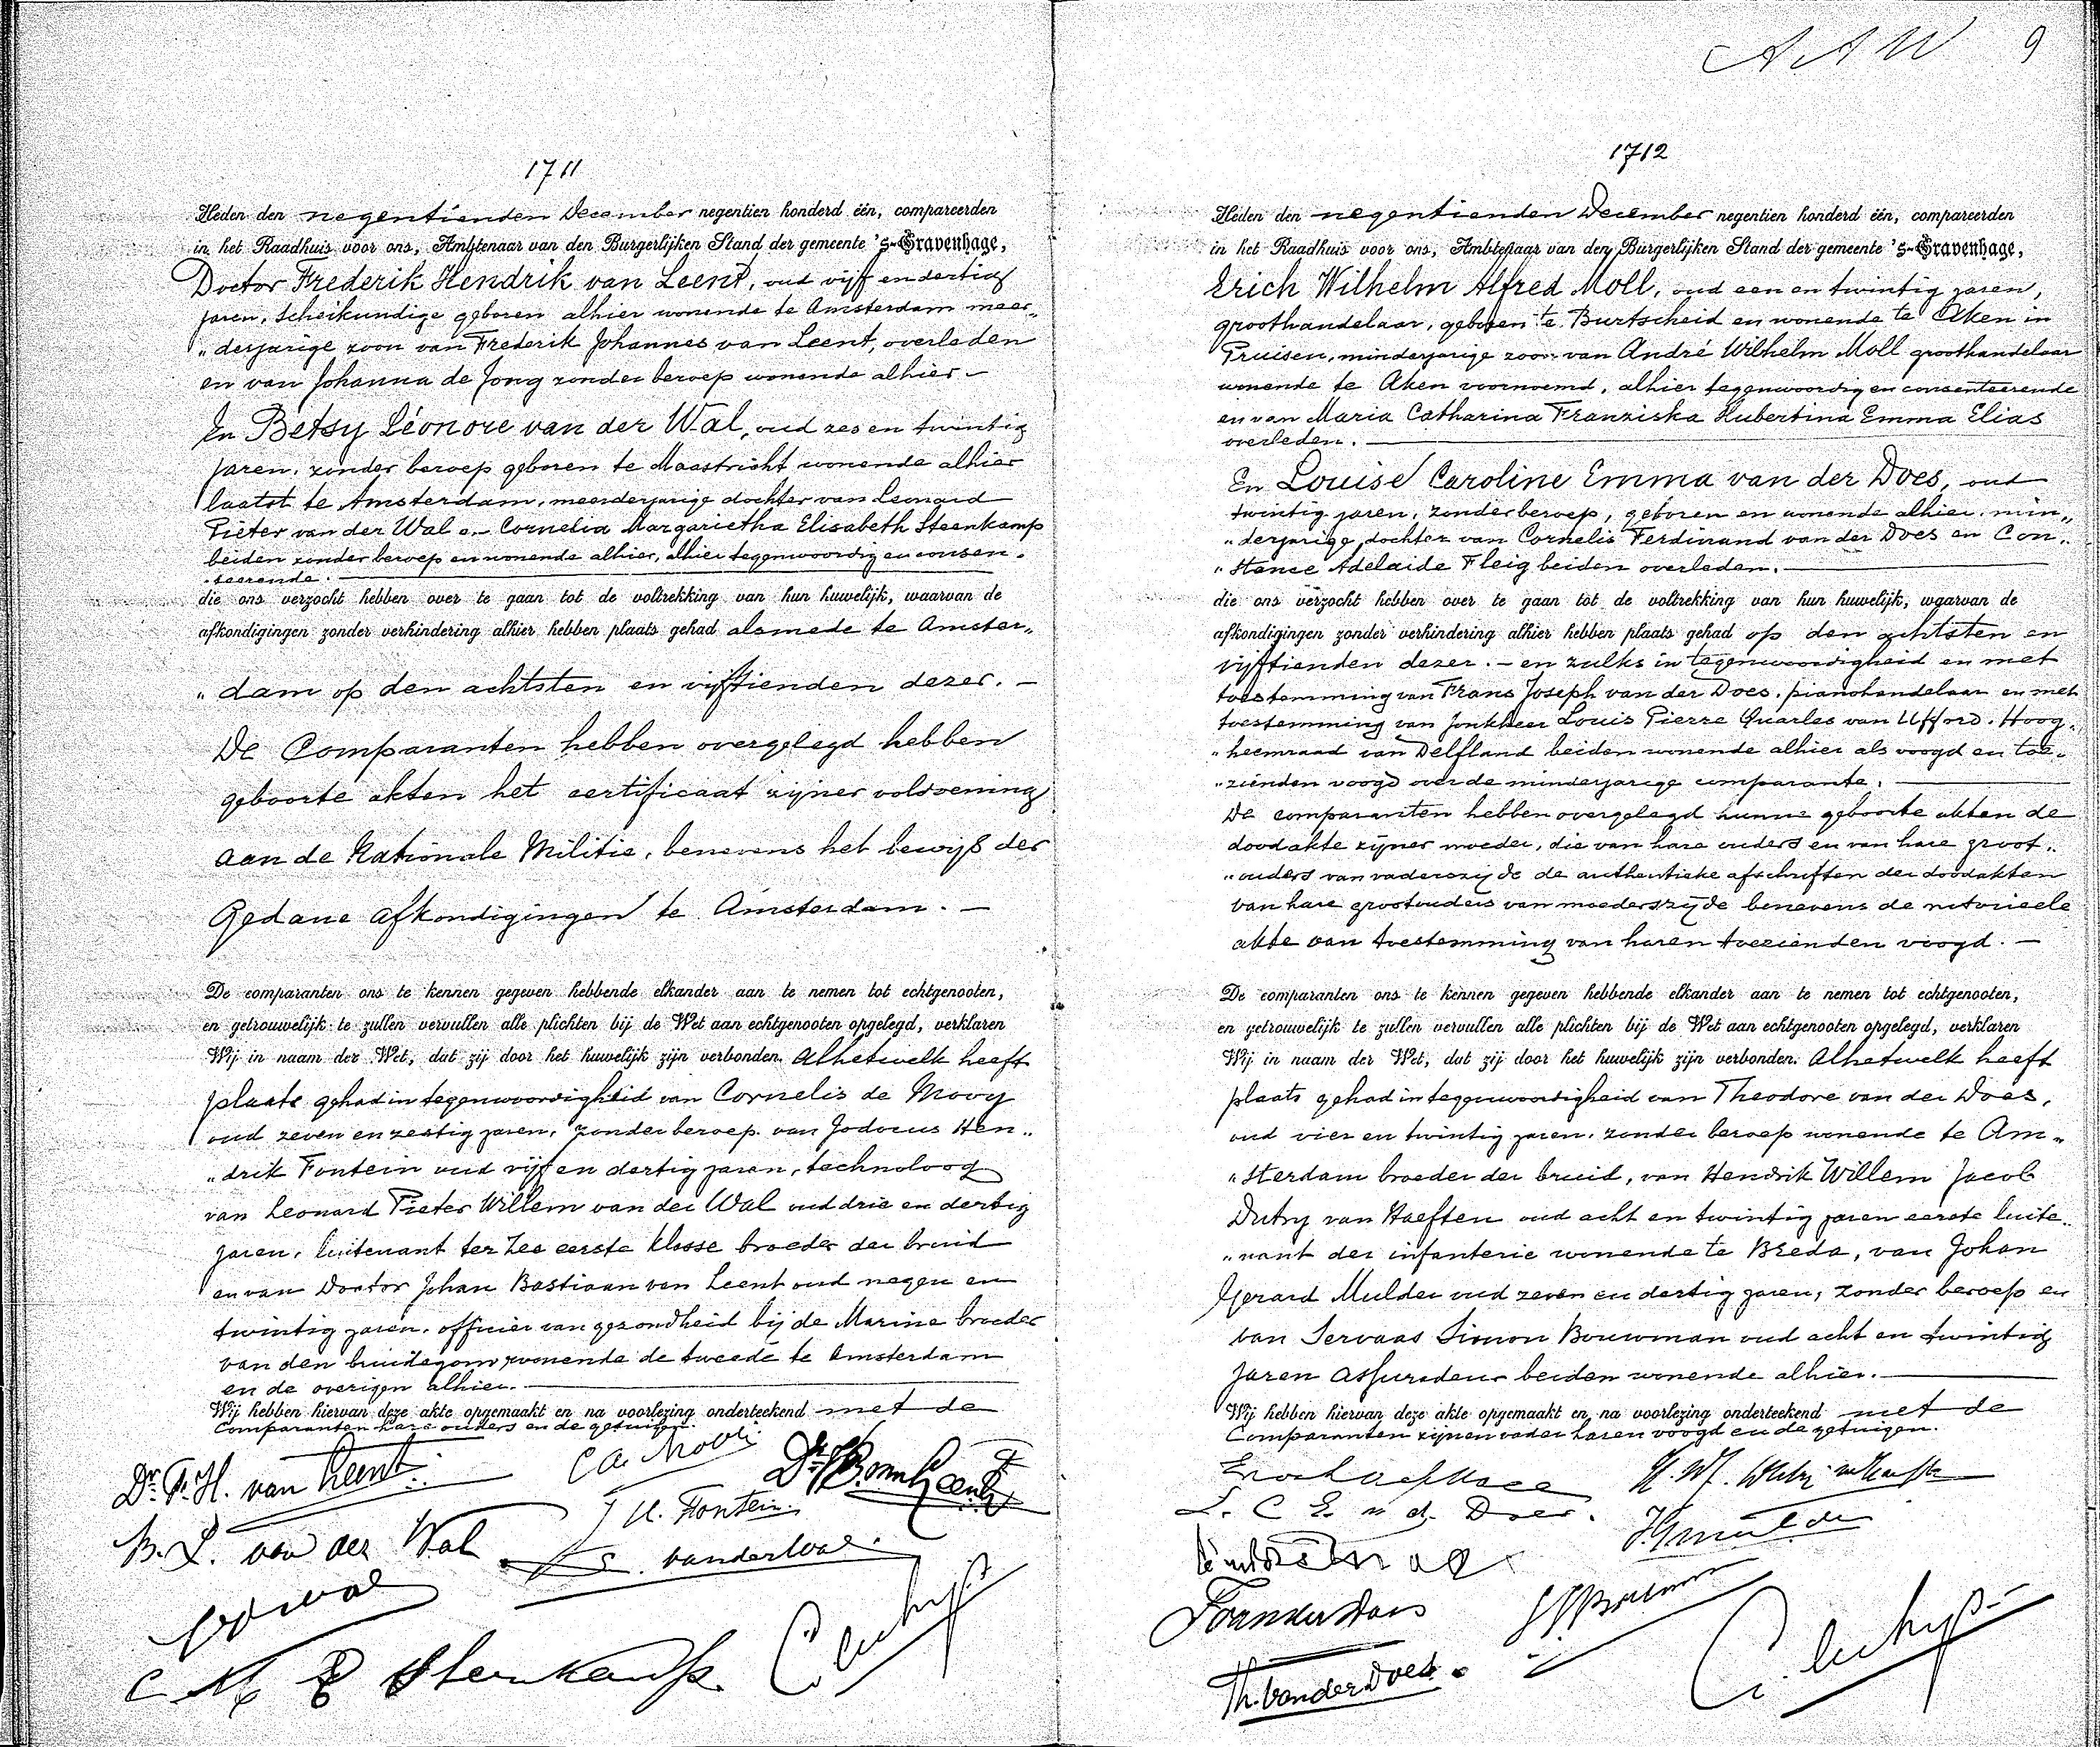 AAW 9
1711
Heden den negentienden December negentien honderd één, compareerden
in het Raadhuis voor ons, Ambtenaar van den Burgerlijken Stand der gemeente 's-Gravenhage,
Doctor Frederik Hendrik van Leent, oud vijf en dertig
jaren, scheikundige geboren alhier wonende te Amsterdam meer„
„derjarige zoon van Frederik Johannes van Leent, overleden
en van Johanna de Jong zonder beroep wonende alhier –
En Betsy Léonore van der Wal, oud zes en twintig
jaren, zonder beroep geboren te Maastricht wonende alhier
laatst te Amsterdam, meerderjarige dochter van Leonard
Pieter van der Wal en Cornelia Margarietha Elisabeth Steenkamp
beiden zonder beroep en wonende alhier, alhier tegenwoordig en consen„
„teerende.
die ons verzocht hebben over te gaan tot de voltrekking van hun huwelijk, waarvan de
afkondigingen zonder verhindering alhier hebben plaats gehad alsmede te Amster„
„dam op den achtsten en vijftienden dezer. –
De Comparanten hebben overgelegd hebben
geboorte akten het certificaat zijner voldoening
aan de Nationale Militie, benevens het bewijs der
Gedane afkondigingen te Amsterdam. –
De comparanten ons te kennen gegeven hebbende elkander aan te nemen tot echtgenooten,
en getrouwelijk te zullen vervullen alle plichten bij de Wet aan echtgenooten opgelegd, verklaren
Wij in naam der Wet, dat zij door het huwelijk zijn verbonden. Alhetwelk heeft
plaats gehad in tegenwoordigheid van Cornelis de Mooy
oud zeven en zestig jaren, zonder beroep van Jodocus Hen„
„drik Fontein oud vijf en dertig jaren, technoloog
van Leonard Pieter Willem van der Wal oud drie en dertig
jaren, luitenant ter Zee eerste klasse broeder der bruid
en van Doctor Johan Bastiaan van Leent oud negen en
twintig jaren, officier van gezondheid bij de Marine broeder
van den bruidegom wonende de tweede te Amsterdam
en de overigen alhier.
Wij hebben hiervan deze akte opgemaakt en na voorlezing onderteekend met de
Comparanten hare ouders en de getuigen.
Dr. F. H. van Leent
B. L. van der Wal
J H. Fontein
van der Wal
C M E Steenkamp
1712
Heden den negentienden December negentien honderd één, compareerden
in het Raadhuis voor ons, Ambtenaar van den Burgerlijken Stand der gemeente 's-Gravenhage,
Erich Wilhelm Alfred Moll, oud een en twintig jaren,
groothandelaar, geboren te Burtscheid en wonende te Aken in
Pruisen, minderjarige zoon van André Wilhelm Moll groothandelaar
wonende te Aken voornoemd, alhier tegenwoordig en consenteerende
en van Maria Catharina Franziska Hubertina Emma Elias
overleden.
En Louise Caroline Emma van der Does, oud
twintig jaren, zonder beroep, geboren en wonende alhier, min„
„derjarige dochter van Cornelis Ferdinand van der Does en Con„
„stance Adelaide Fleig beiden overleden.
die ons verzocht hebben over te gaan tot de voltrekking van hun huwelijk, waarvan de
afkondigingen zonder verhindering alhier hebben plaats gehad op den achtsten en
vijftienden dezer. – en zulks in tegenwoordigheid en met
toestemming van Frans Joseph van der Does, pianohandelaar en met
toestemming van Jonkheer Louis Pierre Quarles van Ufford, Hoog„
„heemraad van Delfland beiden wonende alhier als voogd en toe„
„zienden voogd over de minderjarige comparante.
De comparanten hebben overgelegd hunne geboorte akten de
doodakte zijner moeder, die van hare ouders en van hare groot„
„ouders van vaderszijde de authentieke afschriften der doodakten
van hare grootouders van moederszijde benevens de notarieele
akte van toestemming van haren toezienden voogd. –
De comparanten ons te kennen gegeven hebbende elkander aan te nemen tot echtgenooten,
en getrouwelijk te zullen vervullen alle plichten bij de Wet aan echtgenooten opgelegd, verklaren
Wij in naam der Wet, dat zij door het huwelijk zijn verbonden. Alhetwelk heeft
plaats gehad in tegenwoordigheid van Theodore van der Does,
oud vier en twintig jaren, zonder beroep wonende te Am„
„sterdam broeder der bruid, van Hendrik Willem Jacob
Dutry van Haeften oud acht en twintig jaren eerste luite„
„nant der infanterie wonende te Breda, van Johan
Gerard Mulder oud zeven en dertig jaren, zonder beroep en
van Servaas Simon Bouwman oud acht en twintig
jaren assuradeur beiden wonende alhier.
Wij hebben hiervan deze akte opgemaakt en na voorlezing onderteekend met de
Comparanten zijnen vader haren voogd en de getuigen.
L. C E. v d. Does.
JGMulder
Th. van der Does.